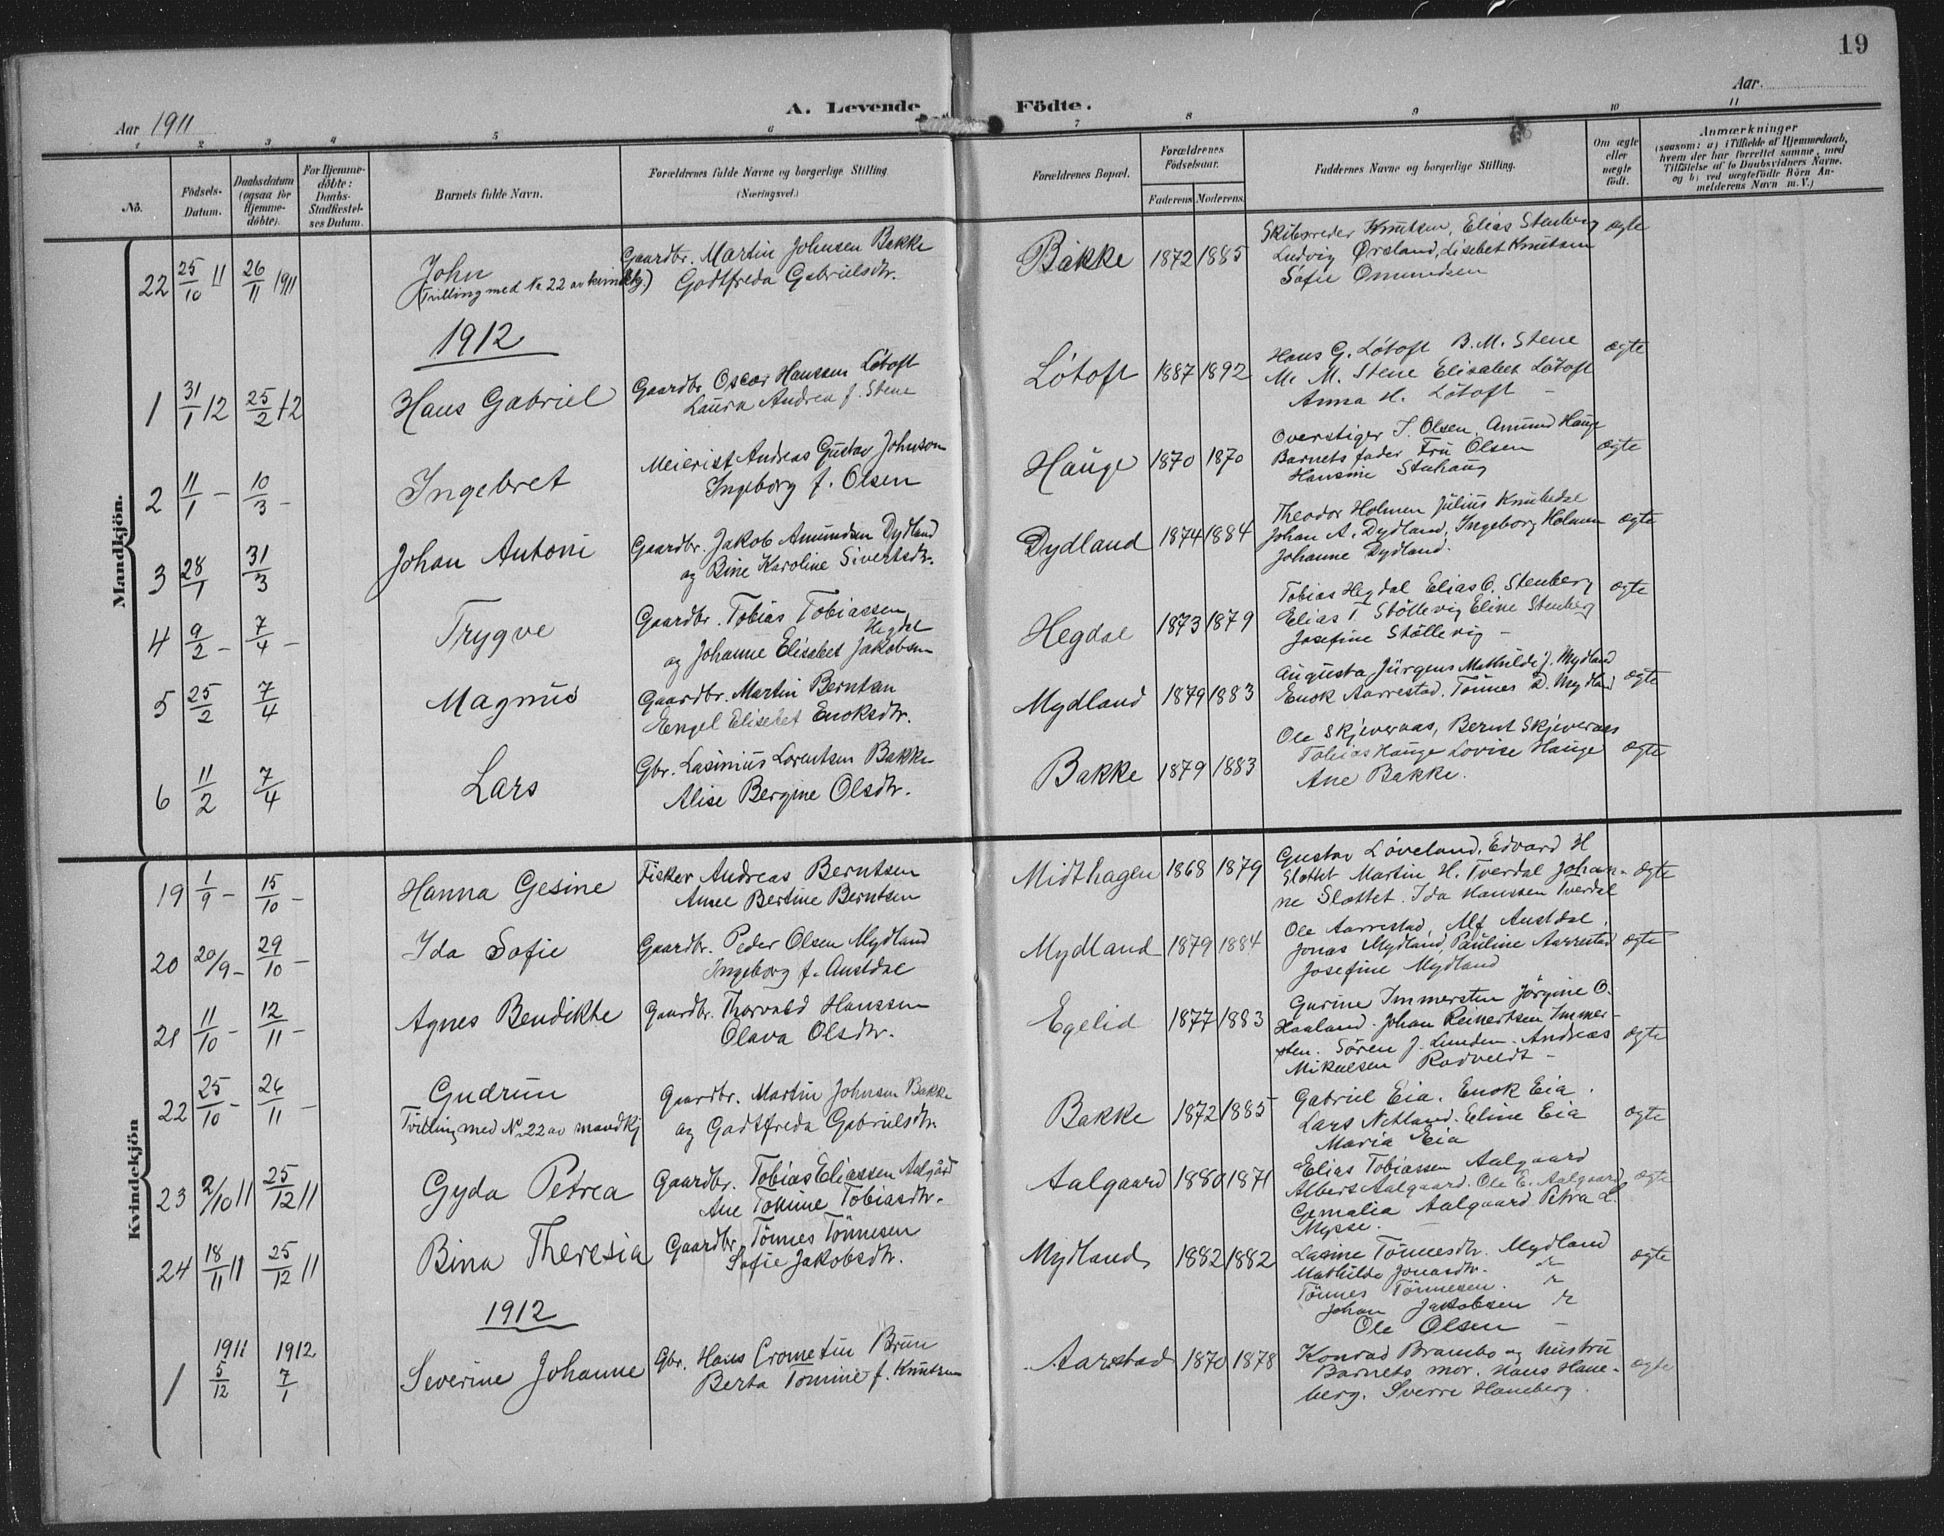 19
Aar 1911
A. Levende Födte.
Aar
1 2 3 4 5 6 7 8 9 10 11
No.
Födsels-Datum.
Daabsdatum (ogsaa for Hjemme-döbte).
For Hjemme-döbte: Daabs-Stadfæstel-ses Datum.
Barnets fulde Navn.
Forældrenes fulde Navne og borgerlige Stilling (Næringsvei.)
Forældrenes Bopæl.
Forældrenes Födselsaar.
Faderens Moderens
Faddernes Navne og borgerlige Stilling.
Om ægte eller uægte födt.
Anmærkninger
(saasom: a) i Tilfælde af Hjemmedaab, hvem der har forrettet samme, med Tilföielse af to Daabsvidners Navne. og b) ved uægtefödte Börn An-melderens Navn m. V.)
Mandkjön.
22 25/10 11 26/11 1911 John Gaardbr. Martin Johnsen Bakke Bakke 1872 1885 Skibsreder Knutsen, Elias Stenberg ægte
(Tvilling med No 22 av kvindekj.) Godtfreda Gabrielsdtr. Ludvig Ørsland, Lisebet Knutsen
Sofie Omundsen
1912
1 31/1 12 25/2 12 Hans Gabriel Gaardbr. Oscar Hanssen Løtoft Løtoft 1887 1892 Hans G. Løtoft B. M. Stene ægte
Laura Andrea f. Stene M. M. Stene Elisabet Løtoft
Anna H. Løtoft
2 11/1 - 10/3 - Ingebret Meierist Andreas Gustav Johnson Hauge 1870 1870 Overstiger I. Olsen, Amund Hauge ægte
Ingeborg f. Olsen Barnets fader Fru Olsen
Hansine Stuhaug
3 28/1 31/3 Johan Antoni Gaardbr. Jakob Amundsen Dydland Dydland 1874 1884 Theodor Holmen Julius Knubedal ægte
og Bine Karoline Sivertsdtr. Johan A. Dydland, Ingeborg Holmen
Johanne Dydland.
4 9/2 - 7/4 - Trygve Gaardbr. Tobias Tobiassen Hegdal Hegdal 1873 1879 Tobias Hegdal Elias O. Stenberg ægte
og Johanne Elisabet Jakobsen Elias T Støllevig Eline Stenberg
Josefine Støllevig -
5 25/2 7/4 Magnus Gaardbr. Martin Berntsen Mydland 1879 1883 Augusta Jürgens Mathilde J. Mydland ægte
Engel Elisebet Enoksdtr. Enok Aarrestad. Tønnes D. Mydland
6 11/2 7/4 Lars Gbr. Lasinius Lorentsen Bakke Bakke 1879 1883 Ole Skjeveraas, Bernt Skjeveraas ægte
Alise Bergine Olsdtr. Tobias Hauge Lovise Hauge
Ane Bakke.
Kvindekjön
19 1/9 - 15/10 - Hanna Gesine Fisker Andreas Berntsen Midthagen 1868 1879 Gustav Løveland, Edvard H ægte
Anne Bertine Berntsen Slottet Martin H. Tverdal Johan-
ne Slottet. Ida Hanssen Tverdal
20 20/9 - 29/10 - Ida Sofie Gaardbr. Peder Olsen Mydland Mydland 1879 1884 Ole Aarrestad, Alf Austdal, ægte
Ingeborg f. Austdal Jonas Mydland, Pauline Aarrestad
Josefine Mydland
21 11/10 - 12/11 - Agnes Bendikte Gaardbr. Thorvald Hanssen Egelid 1877 1883 Gurine Immersten Jørgine O. ægte
Olava Olsdtr. Haaland. Johan Reinertsen Immer-
sten. Søren J. Lunden. Andreas
Mikalsen Rodveldt -
22 25/10 - 26/11 - Gudrun Gaardbr. Martin Johnsen Bakke Bakke 1872 1885 Gabriel Eia. Enok Eia. ægte
Tvilling med No 22 av mandkj og Godtfreda Gabrielsdtr. Lars Netland. Eline Eia
Maria Eia
23 2/10 11 25/12 11 Gyda Petrea Gaardbr. Tobias Eliassen Aalgård Aalgaard 1880 1871 Elias Tobiassen Aalgaard ægte
Ane Tomine Tobiasdtr. Albert Aalgaard. Ole E. Aalgaard
Cornalia Aalgaard Petra L.
Mysse.
24 18/11 11 25/12 11 Bina Theresia Gaardbr. Tønnes Tønnesen Mydland 1882 1882 Lasine Tønnesdtr. Mydland ægte
Sofie Jakobsdtr. Mathilde Jonasdtr.
Tønnes Tønnesen.
Johan Jakobsen
Ole Olsen -
1912
1 1911 5/12 1912 7/1 Severine Johanne Gbr. Hans Crometin Brun Aarstad 1870 1878 Konrad Brambo og hustru ægte
Berta Tomine f. Knutsen Barnets mor. Hans Hane-
berg. Sverre Haneberg.